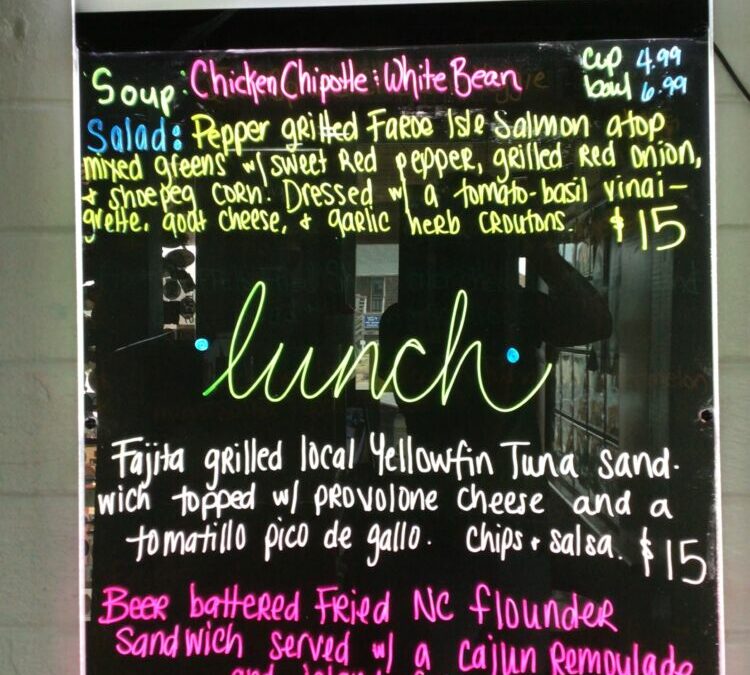 Soup: Chicken Chipotle & White Bean
cup 4.99
bowl 6.99
Salad: Pepper grilled Faroe Isle Salmon atop
mixed greens w/ sweet Red pepper, grilled Red onion,
+ shoepeg corn. Dressed w/ a tomato-basil vinai-
grette, goat cheese, + garlic herb croutons. $15
lunch
Fajita grilled local Yellowfin Tuna sand-
wich topped w/ provolone cheese and a
tomatillo pico de gallo. Chips + salsa. $15
Beer battered Fried NC flounder
Sandwich served w/ a cajun Remoulade
and